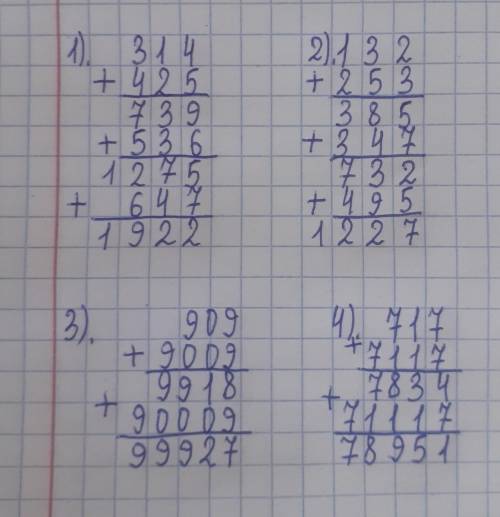 1). 314
+ 425
739
+ 536
1275
+ 647
1922
2). 132
+ 253
385
+ 347
732
+ 495
1227
3). 909
+ 9009
9918
+ 90009
99927
4). 717
+ 7117
7834
+ 71117
78951